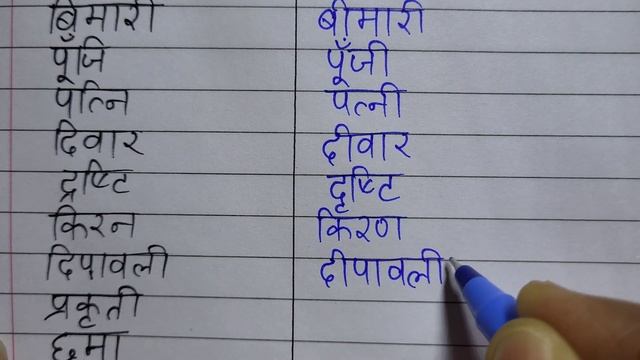 बिमारी बीमारी
पूँजि पूँजी
पत्नि पत्नी
दिवार दीवार
द्रष्टि दृष्टि
किरन किरण
दिपावली दीपावली
प्रकृती
छमा